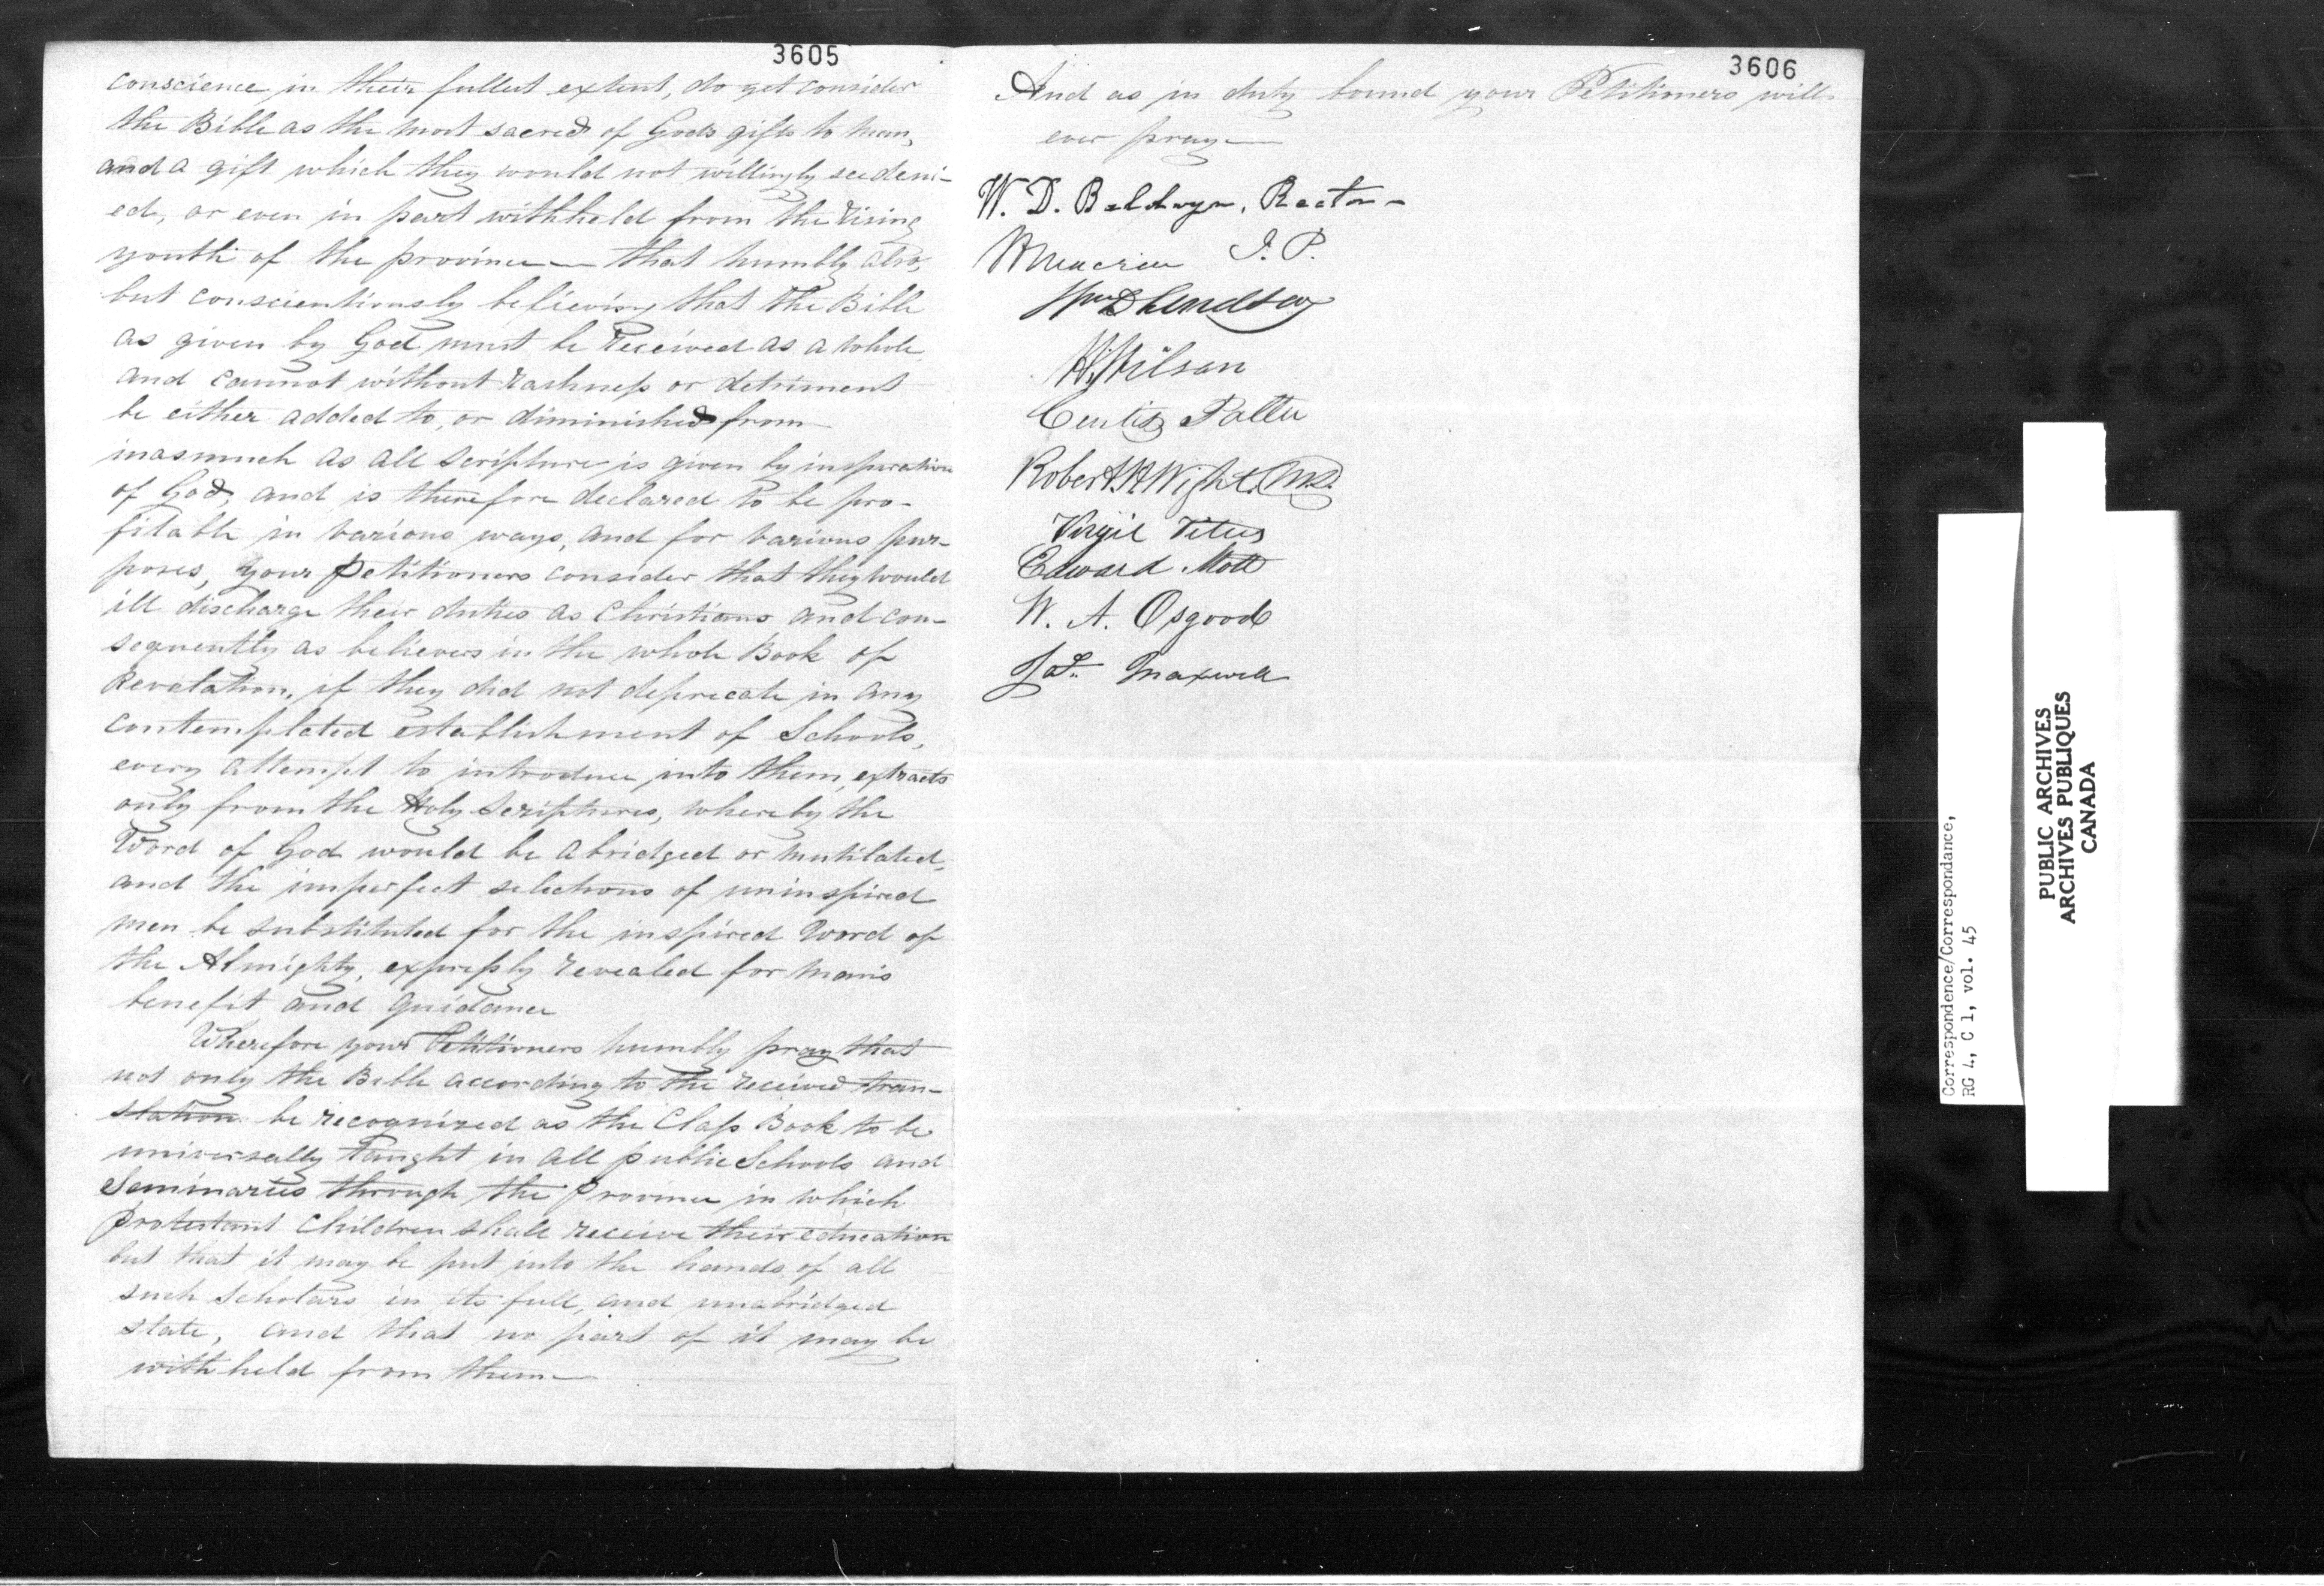 3605
conscience in their fullest extent, do yet consider
the Bible as the most sacred of Gods gifts to man,
and a gift which they would not willingly see deni-
ed, or even in part withheld from the rising
youth of the province — that humbly also,
but conscientiously believing that the Bible
as given by God must be received as a whole
and cannot without rashness or detriment
be either added to, or diminished from
inasmuch as all scripture is given by inspiration
of God, and is therefore declared to be pro-
fitable in various ways, and for various pur-
poses, your Petitioners consider that they would
ill discharge their duties as Christians and con-
sequently as believers in the whole Book of
Revelation, if they did not deprecate in any
contemplated establishment of Schools,
every attempt to introduce into them, extracts
only from the Holy Scriptures, whereby the
Word of God would be abridged or mutilated,
and the imperfect selections of uninspired
men be substituted for the inspired Word of
the Almighty, expressly revealed for man's
benefit and guidance
Wherefore your Petitioners humbly pray that
not only the Bible according to the received tran-
slation be recognized as the Class Book to be
universally taught in all public Schools and
Seminaries through the Province in which
protestant children shall receive their education
but that it may be put into the hands of all
such scholars in its full, and unabridged
state, and that no part of it may be
withheld from them —
3606
And as in duty bound your Petitioners will
ever pray —
W. D. Baldwyn, Rector -
J. P.
Wm D Lindsay
Wilson
Curtis
Robert H Wight, M.D.
Virgil Titus
Edward Mott
W. A. Osgood
Jas. Maxwell
Correspondence/Correspondance,
RG 4, C 1, vol. 45
PUBLIC ARCHIVES
ARCHIVES PUBLIQUES
CANADA